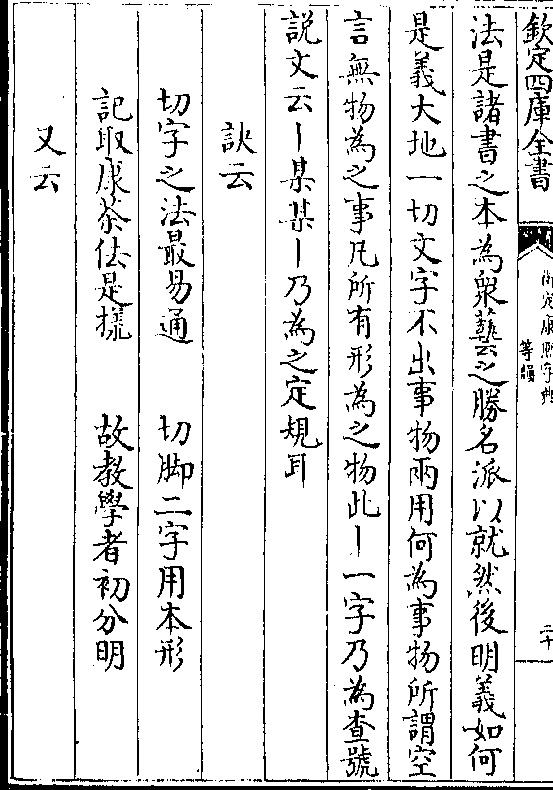 欽定四庫全書
御定康熙字典
等韻
二十
法是諸書之本為衆藝之勝名派以就然後明義如何
是義大地一切文字不出事物兩用何為事物所謂空
言無物為之事凡所有形為之物此丨一字乃為查號
説文云丨某某丨乃為之定規耳
訣云
切字之法最易通　切脚二字用本形
記取康荼佉是㨾　故教學者初分明
又云